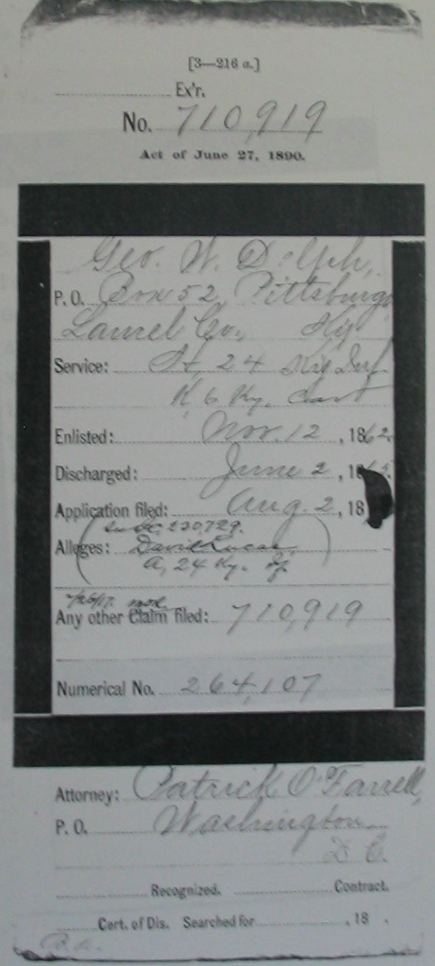 [3—216 a.]
Ex'r.
No. 710,919
Act of June 27, 1890.
Geo. W. Dolph,
P. O. Box 52, Pittsburg,
Laurel Co., Ky
Service: A, 24 Ky Inf
K 6 Ky. Cav
Enlisted: Nov. 12, 1862.
Discharged: June 2, 18
Application filed: Aug. 2, 18
230729.
Alleges: David Lucas,
A, 24 Ky.
Any other Claim filed: 710,919
Numerical No. 264,107
Attorney: Patrick O'Farrell,
P. O. Washington
D C.
Recognized. Contract.
Cert. of Dis. Searched for , 18 .